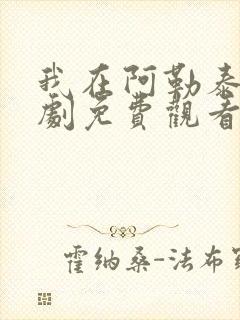 我在阿勒泰
劇免費觀看
霍納桑-法布